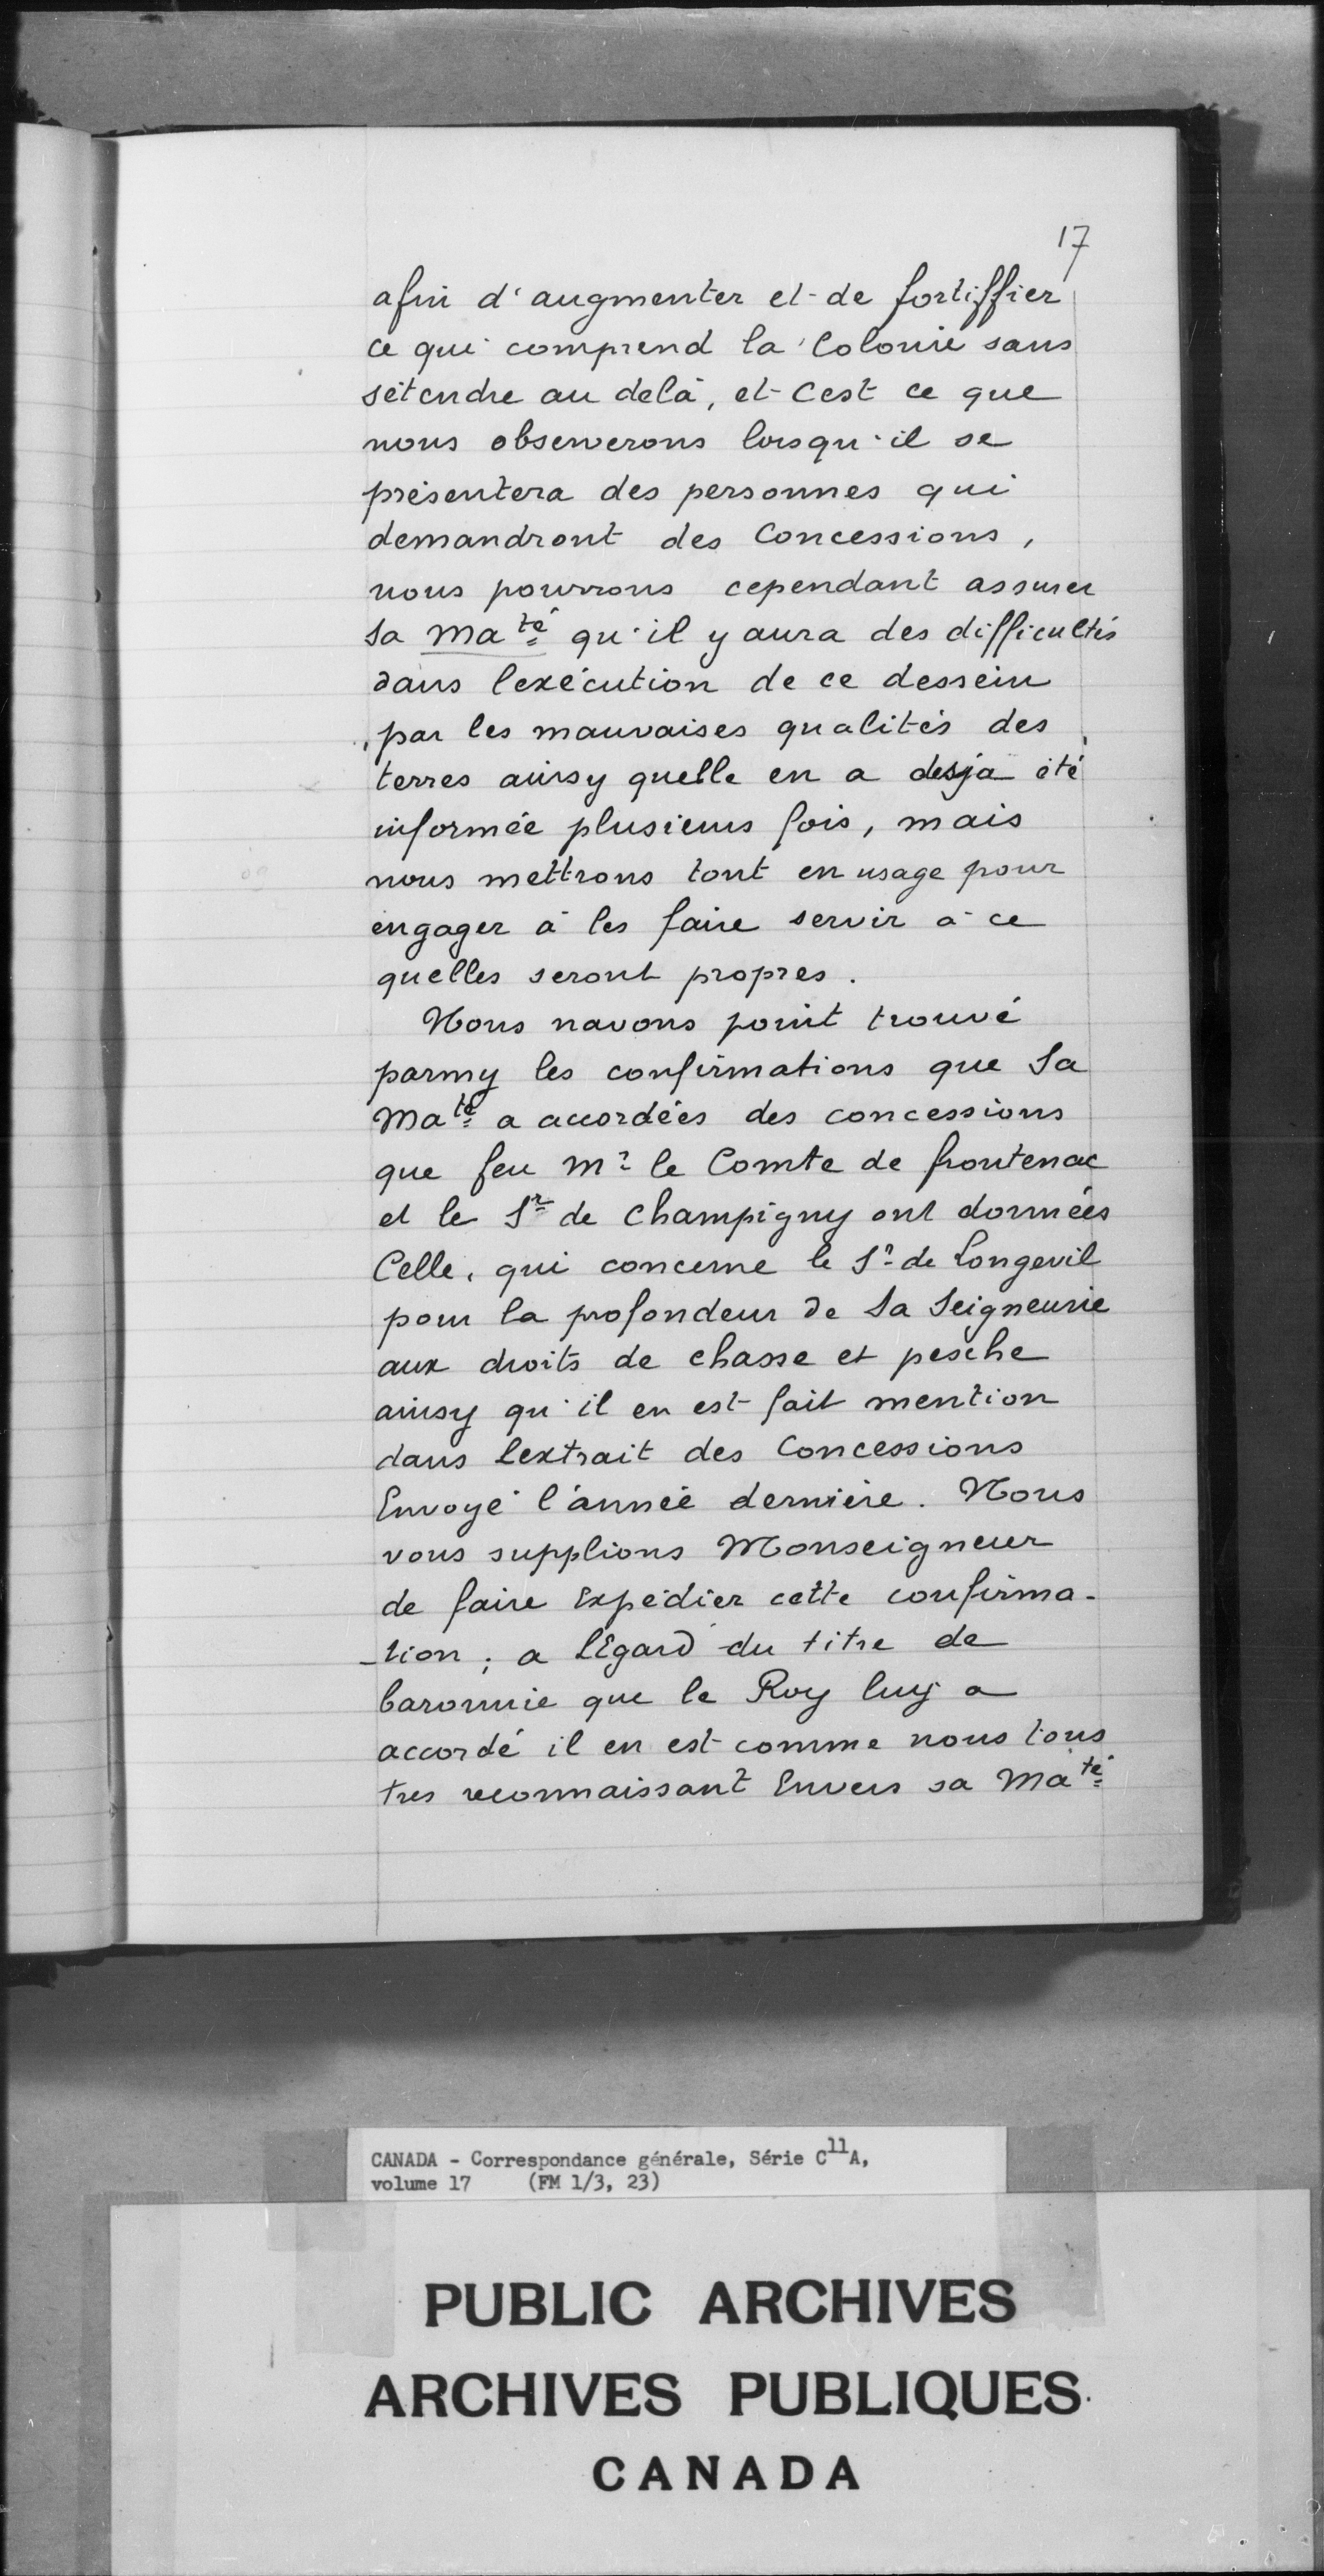 17
afin d'augmenter et de fortiffier
ce qui comprend la Colonie sans
sétendre au delà, et Cest ce que
nous observerons lorsqu'il se
présentera des personnes qui
demandront des Concessions,
nous pourrons cependant assurer
Sa Maté qu'il y aura des difficultés
dans lexécution de ce dessein
par les mauvaises qualités des
terres ainsy quelle en a desja été
informée plusieurs fois, mais
nous mettrons tout en usage pour
engager à les faire servir à ce
quelles seront propres.
Nous navons point trouvé
parmy les confirmations que Sa
Maté a accordées des concessions
que feu Mr le Comte de frontenac
et le Sr de Champigny ont données
Celle, qui concerne le Sr de Longevil
pour la profondeur de Sa Seigneurie
aux droits de chasse et pesche
ainsy qu'il en est fait mention
dans lextrait des Concessions
Envoyé l'année dernière. Nous
vous supplions Monseigneur
de faire Expédier cette confirma-
-tion; a lEgard du titre de
baronnie que le Roy luy a
accordé il en est comme nous tous
tres reconnaissant Envers sa Maté
CANADA - Correspondance générale, Série C11A,
volume 17 (FM 1/3, 23)
PUBLIC ARCHIVES
ARCHIVES PUBLIQUES
CANADA